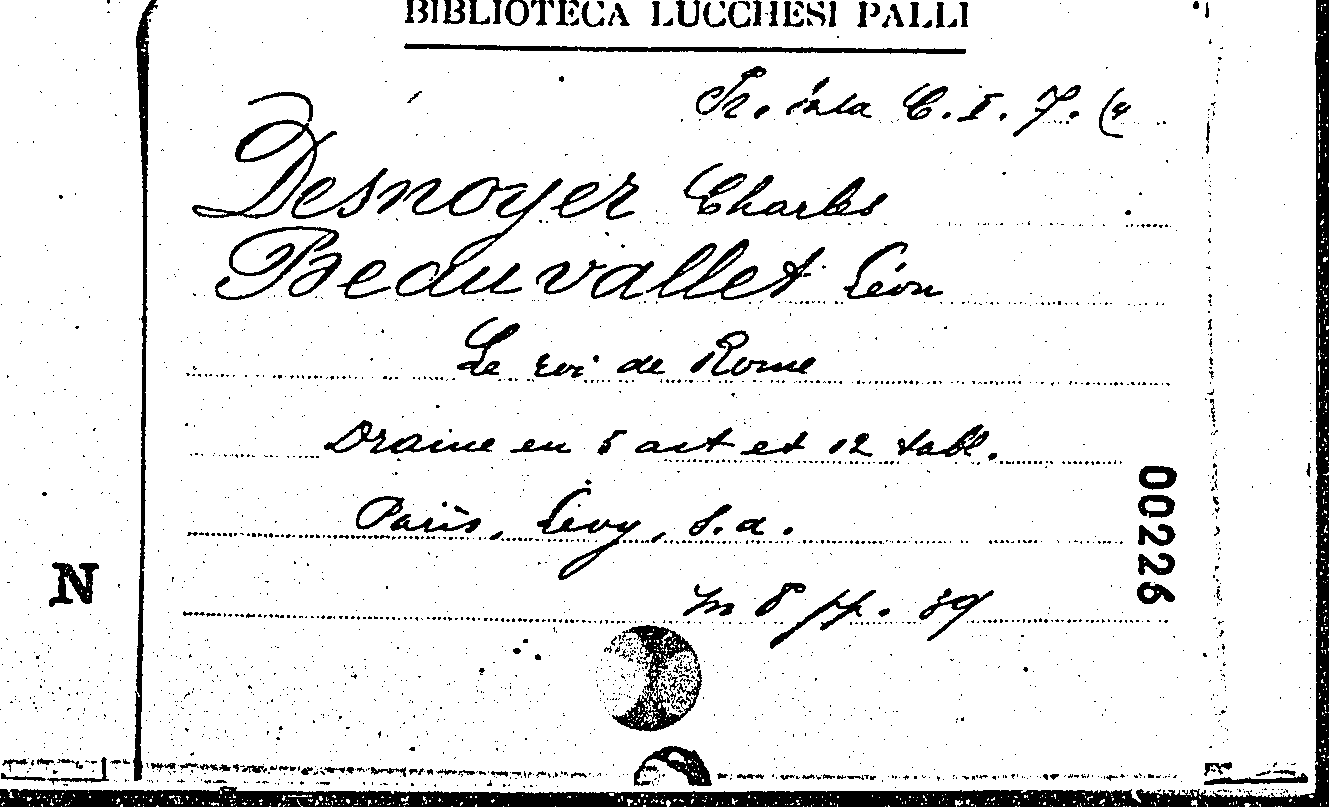 BIBLIOTECA LUCCHESI PALLI
Fr. sala C. I. 7. (4
Desnoyer Charles
Beauvallet Léon
Le roi de Rome
Drame en 5 act et 12 tabl.
Paris, Lévy, s. a.
in 8 pp. 39
00226
N